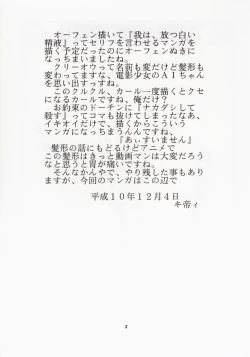 オーフェン描いて『我は、放つ白い
精液』ってセリフを言わせるマンガを
描く予定だったのにオーフェンぬきに
なっちまいましたね。
クリーオウって名前も変だけど髪形も
変わってますな、電影少女のAIちゃん
を思い出すっすね。
このクルクル、カール一度描くとクセ
になるカールですね、俺だけ？
お約束のドーチンに『ナカダシして
殺す』ってコマも抜けてしまったなあ、
イキオイだけで、描くからこういう
マンガになっちまうんですね、
『あぃすいません』
髪形の話にもどるけどアニメで
この髪形はきっと動画マンは大変だろう
なと思うと胃が痛いですね。
そんなかんやで、やり残した事もあり
ますが、今回のマンガはこの辺で
平成10年12月4日
キ帝ィ
2